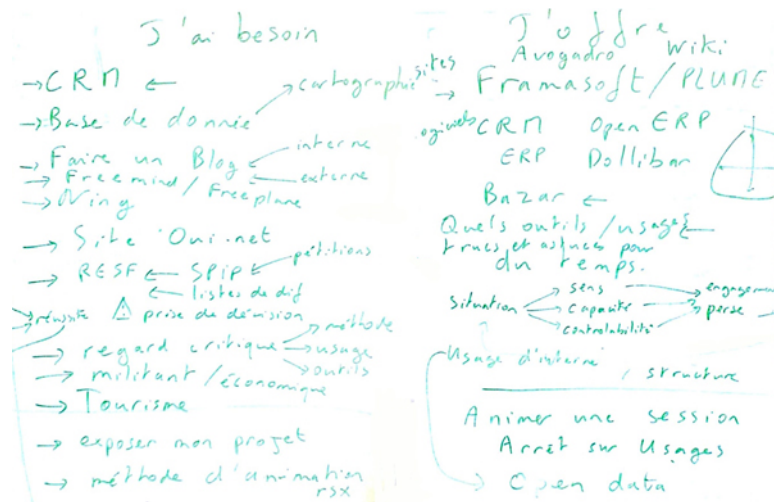 J'ai besoin
→ CRM ←
→ Base de donnée → cartographie
→ Faire un Blog ← interne
externe
→ Freemind / Freeplane
→ Ning
→ Site Oui.net
→ RESF ← SPIP ← pétitions
← listes de dif
→ réussite ⚠ prise de décision
→ regard critique → méthode
→ usage
→ outils
→ militant / économique
→ Tourisme
→ exposer mon projet
→ méthode d'animation
rsx
J'offre
sites Avogadro Wiki
→ Framasoft / PLUME
ogiciels CRM Open ERP
ERP Dollibar
Bazar ←
Quels outils / usages ←
trucs et astuces pour
du temps.
Situation → sens → engagemen
→ capacité → perse
→ controlabilité
Usage d'interne
, structure
Animer une session
Arrêt sur Usages
→ Open data